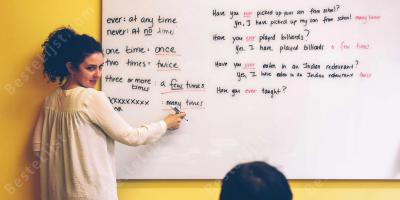 ever: at any time
never: At no time
one time = once
two times = twice
three or more
times : a few times
xxxxxxxxx : many times
Have you ever picked up your son from school?
Yes, I have picked up my son from school many times
Have you ever played billiards?
Yes, I have played billiards a few times
Have you ever eaten in an Indian restaurant?
Yes, I have eaten in an Indian restaurant twice
Have you ever taught?